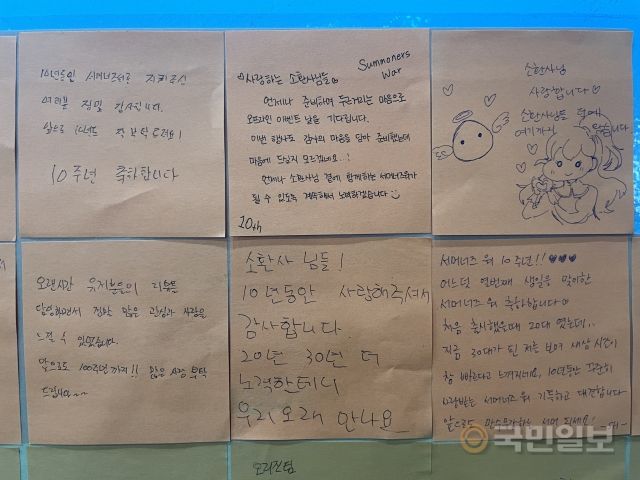 10년동안 서머너즈워를 지켜주신
여러분 정말 감사합니다.
앞으로 10년도 잘 부탁드려요!
10주년 축하합니다
♡사랑하는 소환사님들♡
Summoners
War
언제나 준비하며 두근거리는 마음으로
오프라인 이벤트 날을 기다립니다.
이번 행사도 감사의 마음을 담아 준비했는데
마음에 드실지 모르겠네요..!
언제나 소환사님 곁에 함께하는 서머너즈워가
될 수 있도록 계속해서 노력하겠습니다
10th
소환사님
사랑합니다♡
소환사님들 덕에
여기까지 왔습니다
오랜시간 유저분들의 리뷰를
정말 많은 관심과 사랑을
느낄 수 있었습니다.
앞으로도 100주년까지!! 많은 사랑 부탁
드립니다~~
소환사 님들!
10년동안 사랑해주셔서
감사합니다.
20년 30년 더
노력할테니
우리 오래 만나요
서머너즈 워 10주년!! ♥♥♥
어느덧 열번째 생일을 맞이한
서머너즈 워 축하합니다
처음 출시했을때 20대 였는데..
지금 30대가 된 저를 보며 새삼 시간이
참 빠르다고 느껴지네요, 10년동안 꾸준히
사랑받는 서머너즈 워 기특하고 대견합니다
앞으로도 만수무강하는 서머 되세요!
국민일보